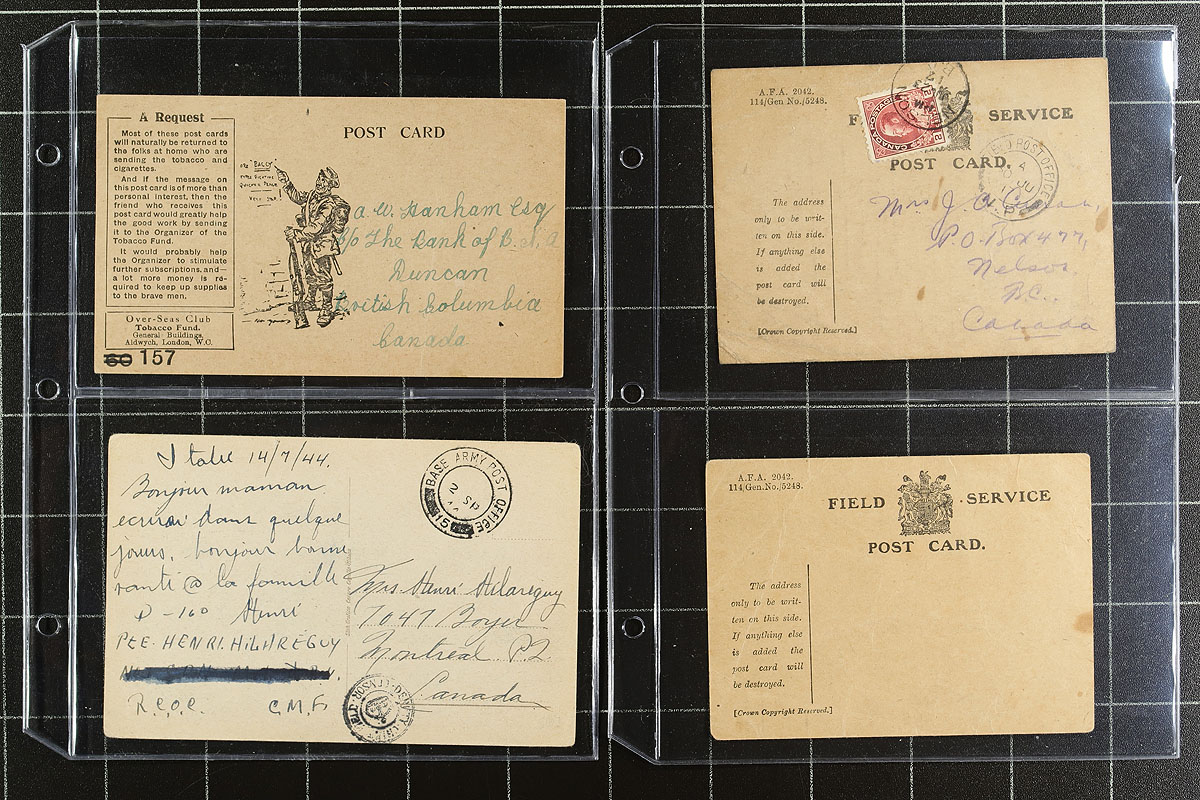 A Request
Most of these post cards
will naturally be returned to
the folks at home who are
sending the tobacco and
cigarettes.
And if the message on
this post card is of more than
personal interest, then the
friend who receives this
post card would greatly help
the good work by sending
it to the Organizer of the
Tobacco Fund.
It would probably help
the Organizer to stimulate
further subscriptions, and—
a lot more money is re-
quired to keep up supplies
to the brave men.
Over-Seas Club
Tobacco Fund.
General Buildings,
Aldwych, London, W.C.
60 157
POST CARD
A.W. Hanham Esq
c/o The Bank of B.N.A
Duncan
British Columbia
Canada
A.F.A. 2042.
114/Gen No./5248.
SERVICE
POST CARD.
CANADA POSTAGE
The address
only to be writ-
ten on this side.
If anything else
is added the
post card will
be destroyed.
[Crown Copyright Reserved.]
POST OFFICE
Mrs J.
P.O. Box 477,
Nelson,
B.C.
Canada
Italie 14/7/44.
Bonjour maman
ecrirai dans quelque
jours, bonjour bonne
santé @ la famille
Henri
PTE. HENRI HILAREGUY
R.C.O.C. C.M.F.
BASE ARMY POST OFFICE
2 SP
Mrs. Henri Hilareguy
7047 Boyer
Montreal P.Q.
Canada
A.F.A. 2042.
114/Gen.No./5248.
FIELD SERVICE
POST CARD.
The address
only to be writ-
ten on this side.
If anything else
is added the
post card will
be destroyed.
[Crown Copyright Reserved.]